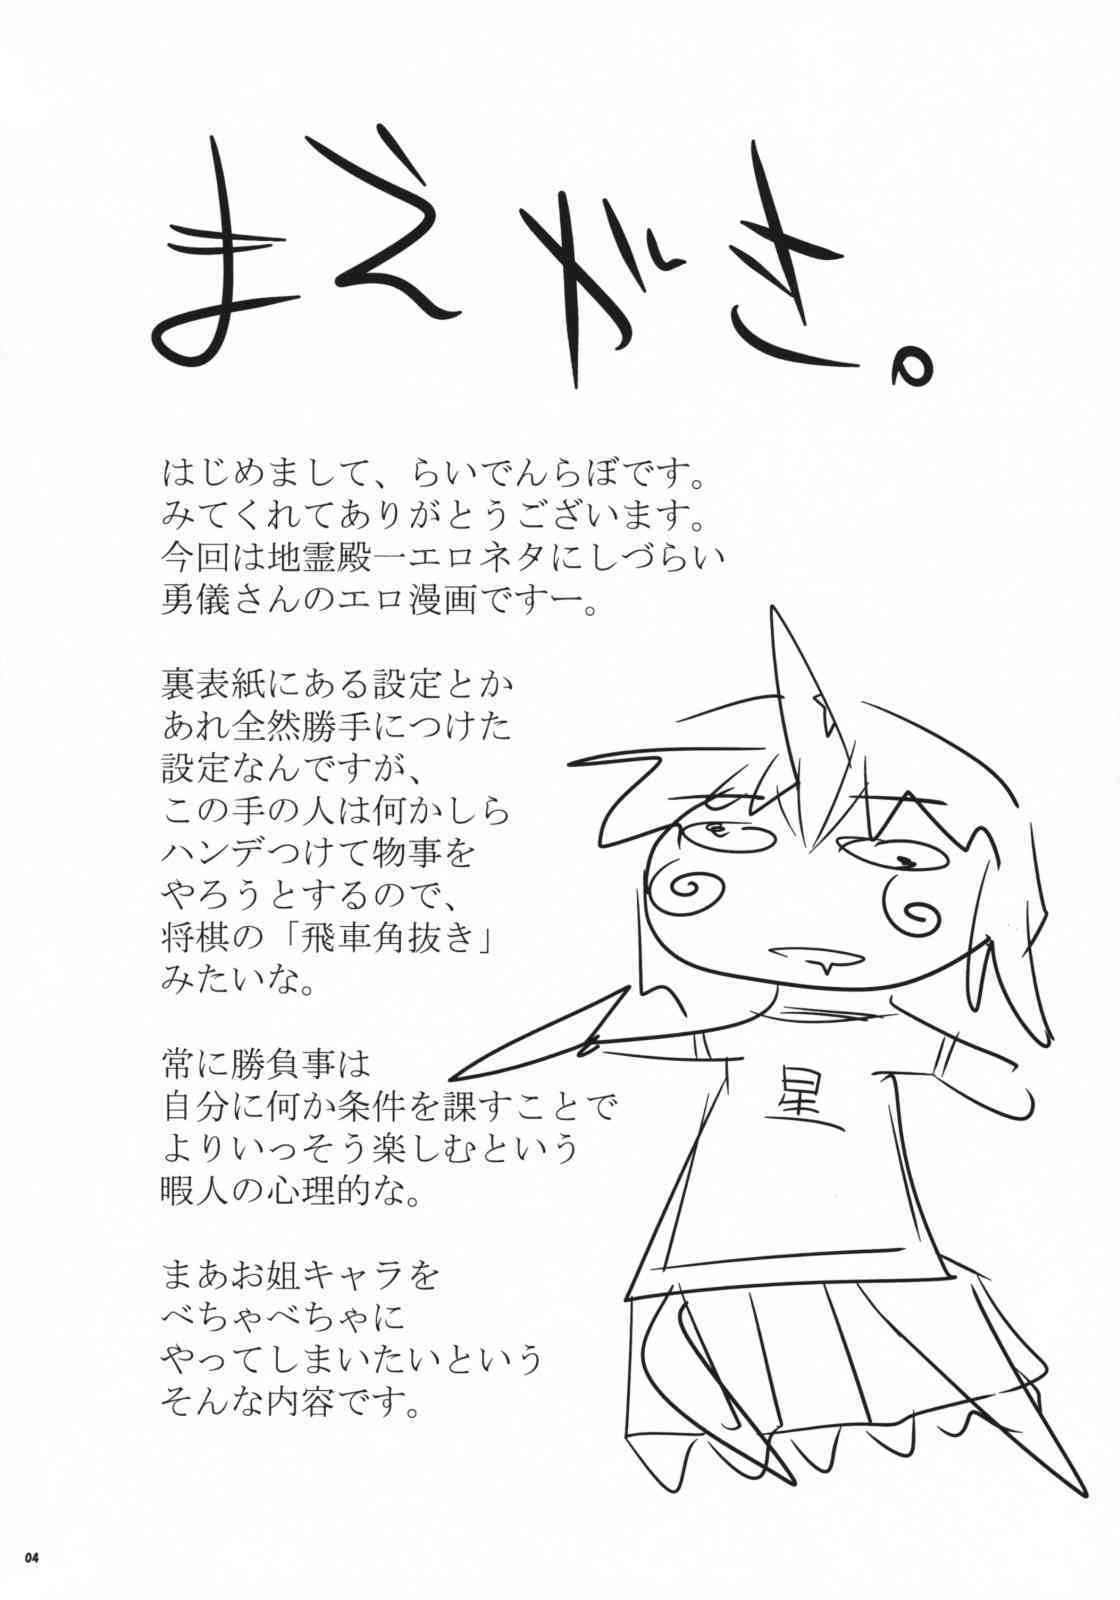 まえがき。
はじめまして、らいでんらぼです。
みてくれてありがとうございます。
今回は地霊殿一エロネタにしづらい
勇儀さんのエロ漫画ですー。
裏表紙にある設定とか
あれ全然勝手につけた
設定なんですが、
この手の人は何かしら
ハンデつけて物事を
やろうとするので、
将棋の「飛車角抜き」
みたいな。
常に勝負事は
自分に何か条件を課すことで
よりいっそう楽しむという
暇人の心理的な。
まあお姐キャラを
べちゃべちゃに
やってしまいたいという
そんな内容です。
星
04